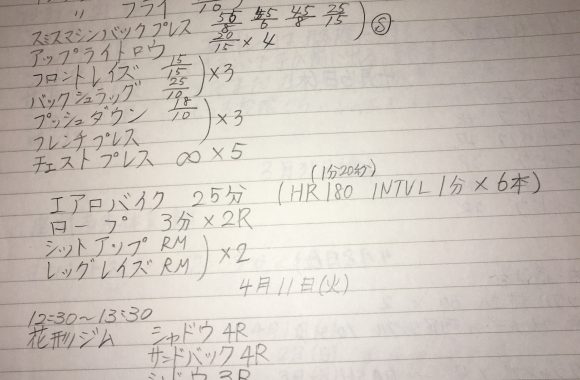 〃 フライ /10
スミスマシンバックプレス 50/8 45/6 45/8 25/15 ) Ⓢ
アップライトロウ 30/15 × 4
フロントレイズ 15/15
バックシュラッグ 25/10 ) ×3
プッシュダウン 18/10
フレンチプレス ) ×3
チェストプレス ∞ × 5
(1分20分)
エアロバイク 25分 (HR 180 INTVL 1分 × 6本)
ロープ 3分 × 2R
シットアップ RM
レッグレイズ RM ) ×2
4月11日(火)
12:30～13:30
花形ジム シャドウ 4R
サンドバック 4R
シャドウ 3R